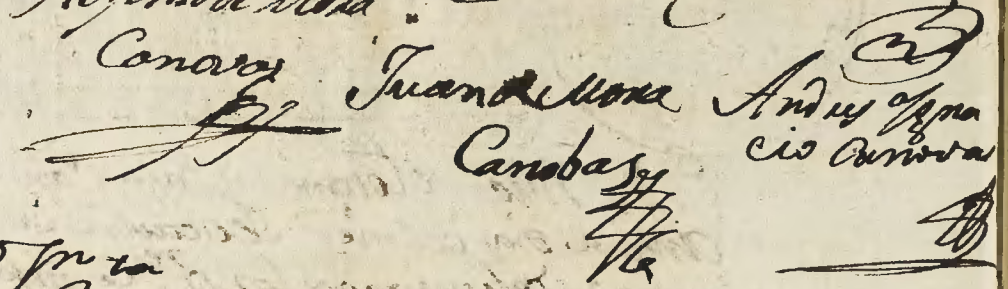 de Mora
Canovas
Juan de Mora
Canobas
Andres Ygna
cio Canovas